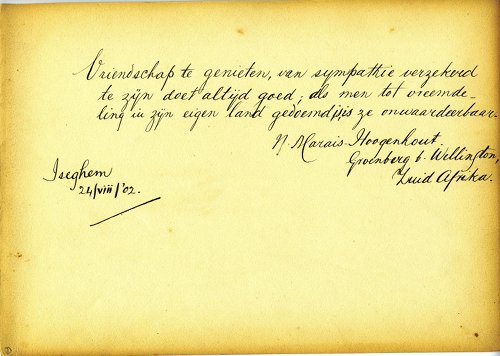 Vriendschap te genieten, van sympathie verzekerd
te zijn doet altijd goed; als men tot vreemde-
ling in zijn eigen land gedoemd is is ze onwaardeerbaar.
N. Marais-Hoogenhout.
Groenberg b. Wellington,
Zuid Afrika.
Iseghem
24/viii/'02.